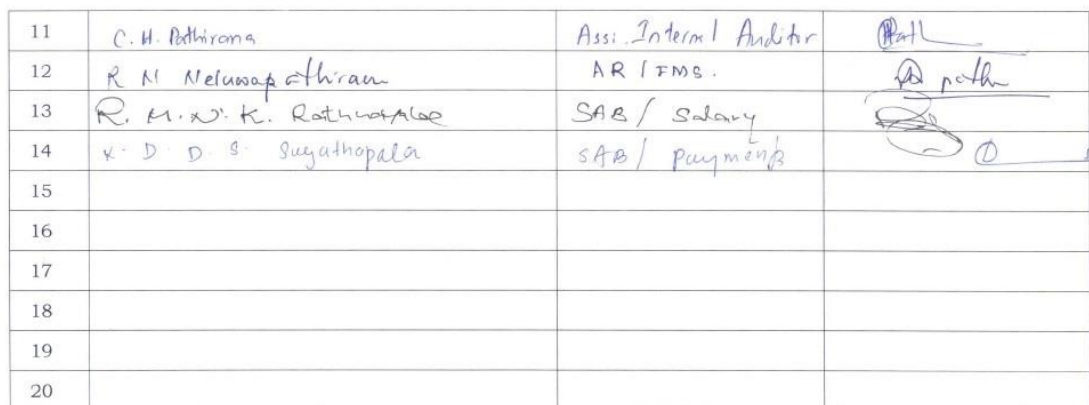 11 C. H. Pathirana Assi. Internal Auditor
12 R N AR / FMS.
13 R. M. N. K. SAB / Salary
14 K. D. D. S. Sugathapala SAB / Payments
15
16
17
18
19
20